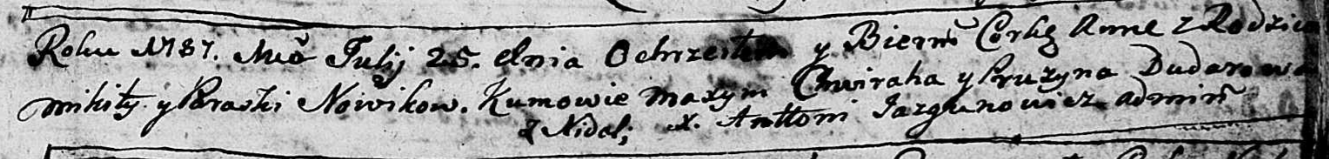 Roku 1787. Mca Julij 25. dnia Ochrzciłem y Bierm Corkę Annę z Rodzicow
Mikity y Paraski Nowikow. Kumowie Maxym Chwiraha y Pruzyna Dudarowa
z Nidal; X. Anttoni Jazgunowicz admin